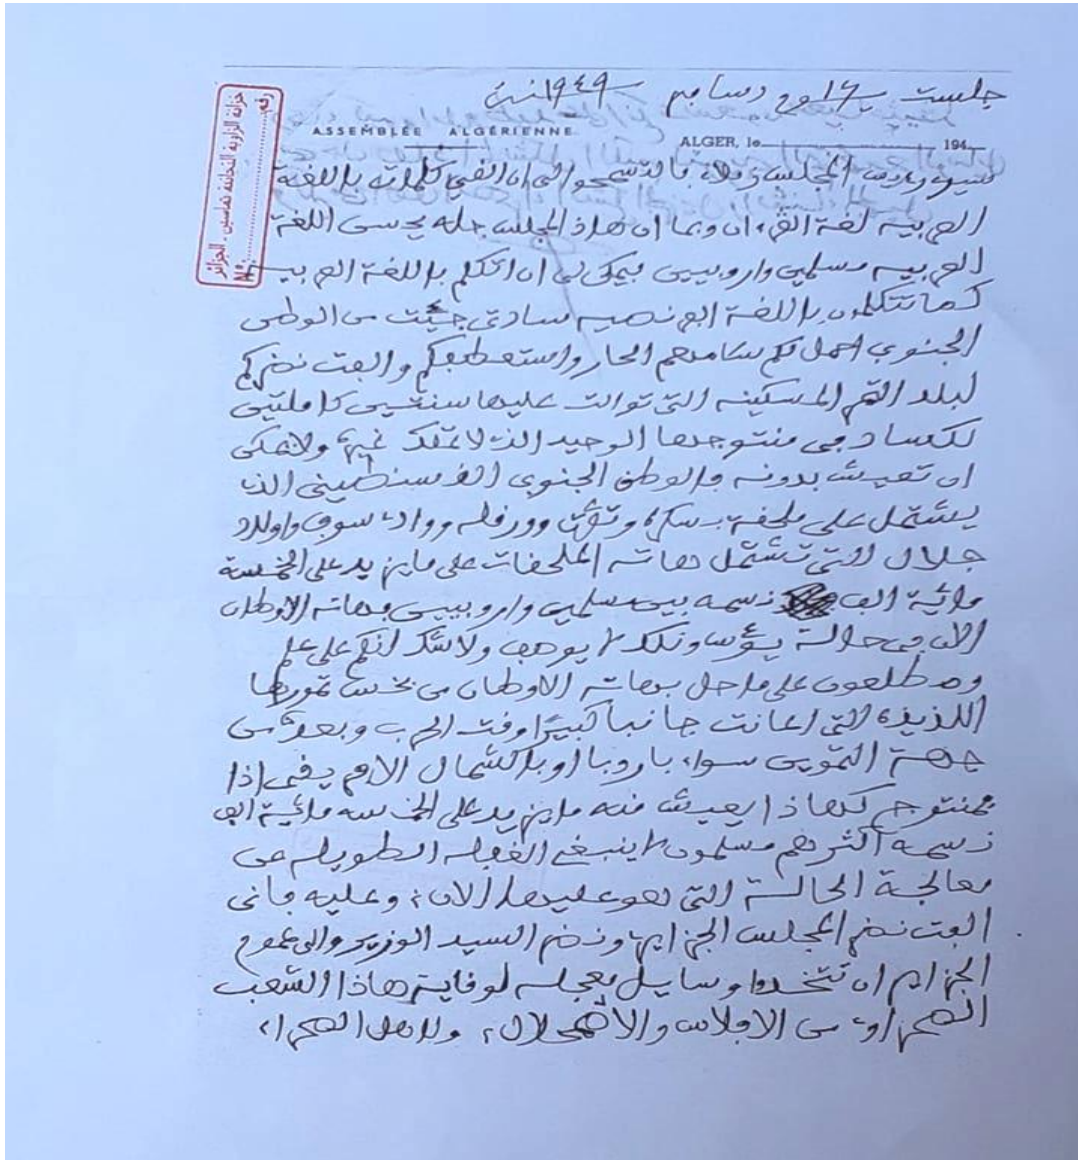 جلست يوم 16 دسامبر سنة 1949
خزانة الزاوية التجانية تماسين - الجزائر
رقم:
Nº:
ASSEMBLÉE ALGÉRIENNE
ALGER, le 194
المجلس زملاء بالتسمحوا لى ان القي كلمات باللغة
العربيه لغة القرءان وبما ان هاذ المجلس جله يحسن اللغة
العربيه مسلمين واروبيين يمكن لى ان اتكلم باللغة العربيه
كما تتكلمون باللغة الفرنصيه سادتى جئت من الوطن
الجنوبي احمل لكم سلامهم الحار واستعطفكم والفت نضركم
لبلد التمر المسكينه التى توالت عليها سنتين كاملتين
لكساد فى منتوجها الوحيد الذى لا تملك غيره ولا يمكن
ان تعيش بدونه فالوطن الجنوبي القسنطيني الذى
يشتمل على ملحقة بسكره وتقرت وورقله وواد سوف واولاد
جلال التى تشتمل هاته الملحقات على ما يزيد على الخمسة
مائية الف نسمه بين مسلمين واروبيين فهاته الاوطان
الان فى حالة بؤس ونكد لا يوصف ولا شك انكم على علم
ومطلعون على ما حل بهاته الاوطان من بخس تمورها
اللذيذة التى اعانت جانبا كبيرا وقت الحرب وبعده من
جهة التموين سواء باروبا او بالشمال الافريقى اذا
فمنتوج كهاذا يعيش منه ما يزيد على الخمسه مائية الف
نسمه أكثرهم مسلمون لا ينبغى الغفله الطويله عن
معالجة الحالة التى هو عليها الان، وعليه فانى
الفت نضر المجلس الجزايرى ونضر السيد الوزير والى عموم
الجزاير ان تتخدوا وسايل معجله لوقاية هاذا الشعب
الصحراوى من الافلاس والاضمحلال، ولاهل الصحراء،